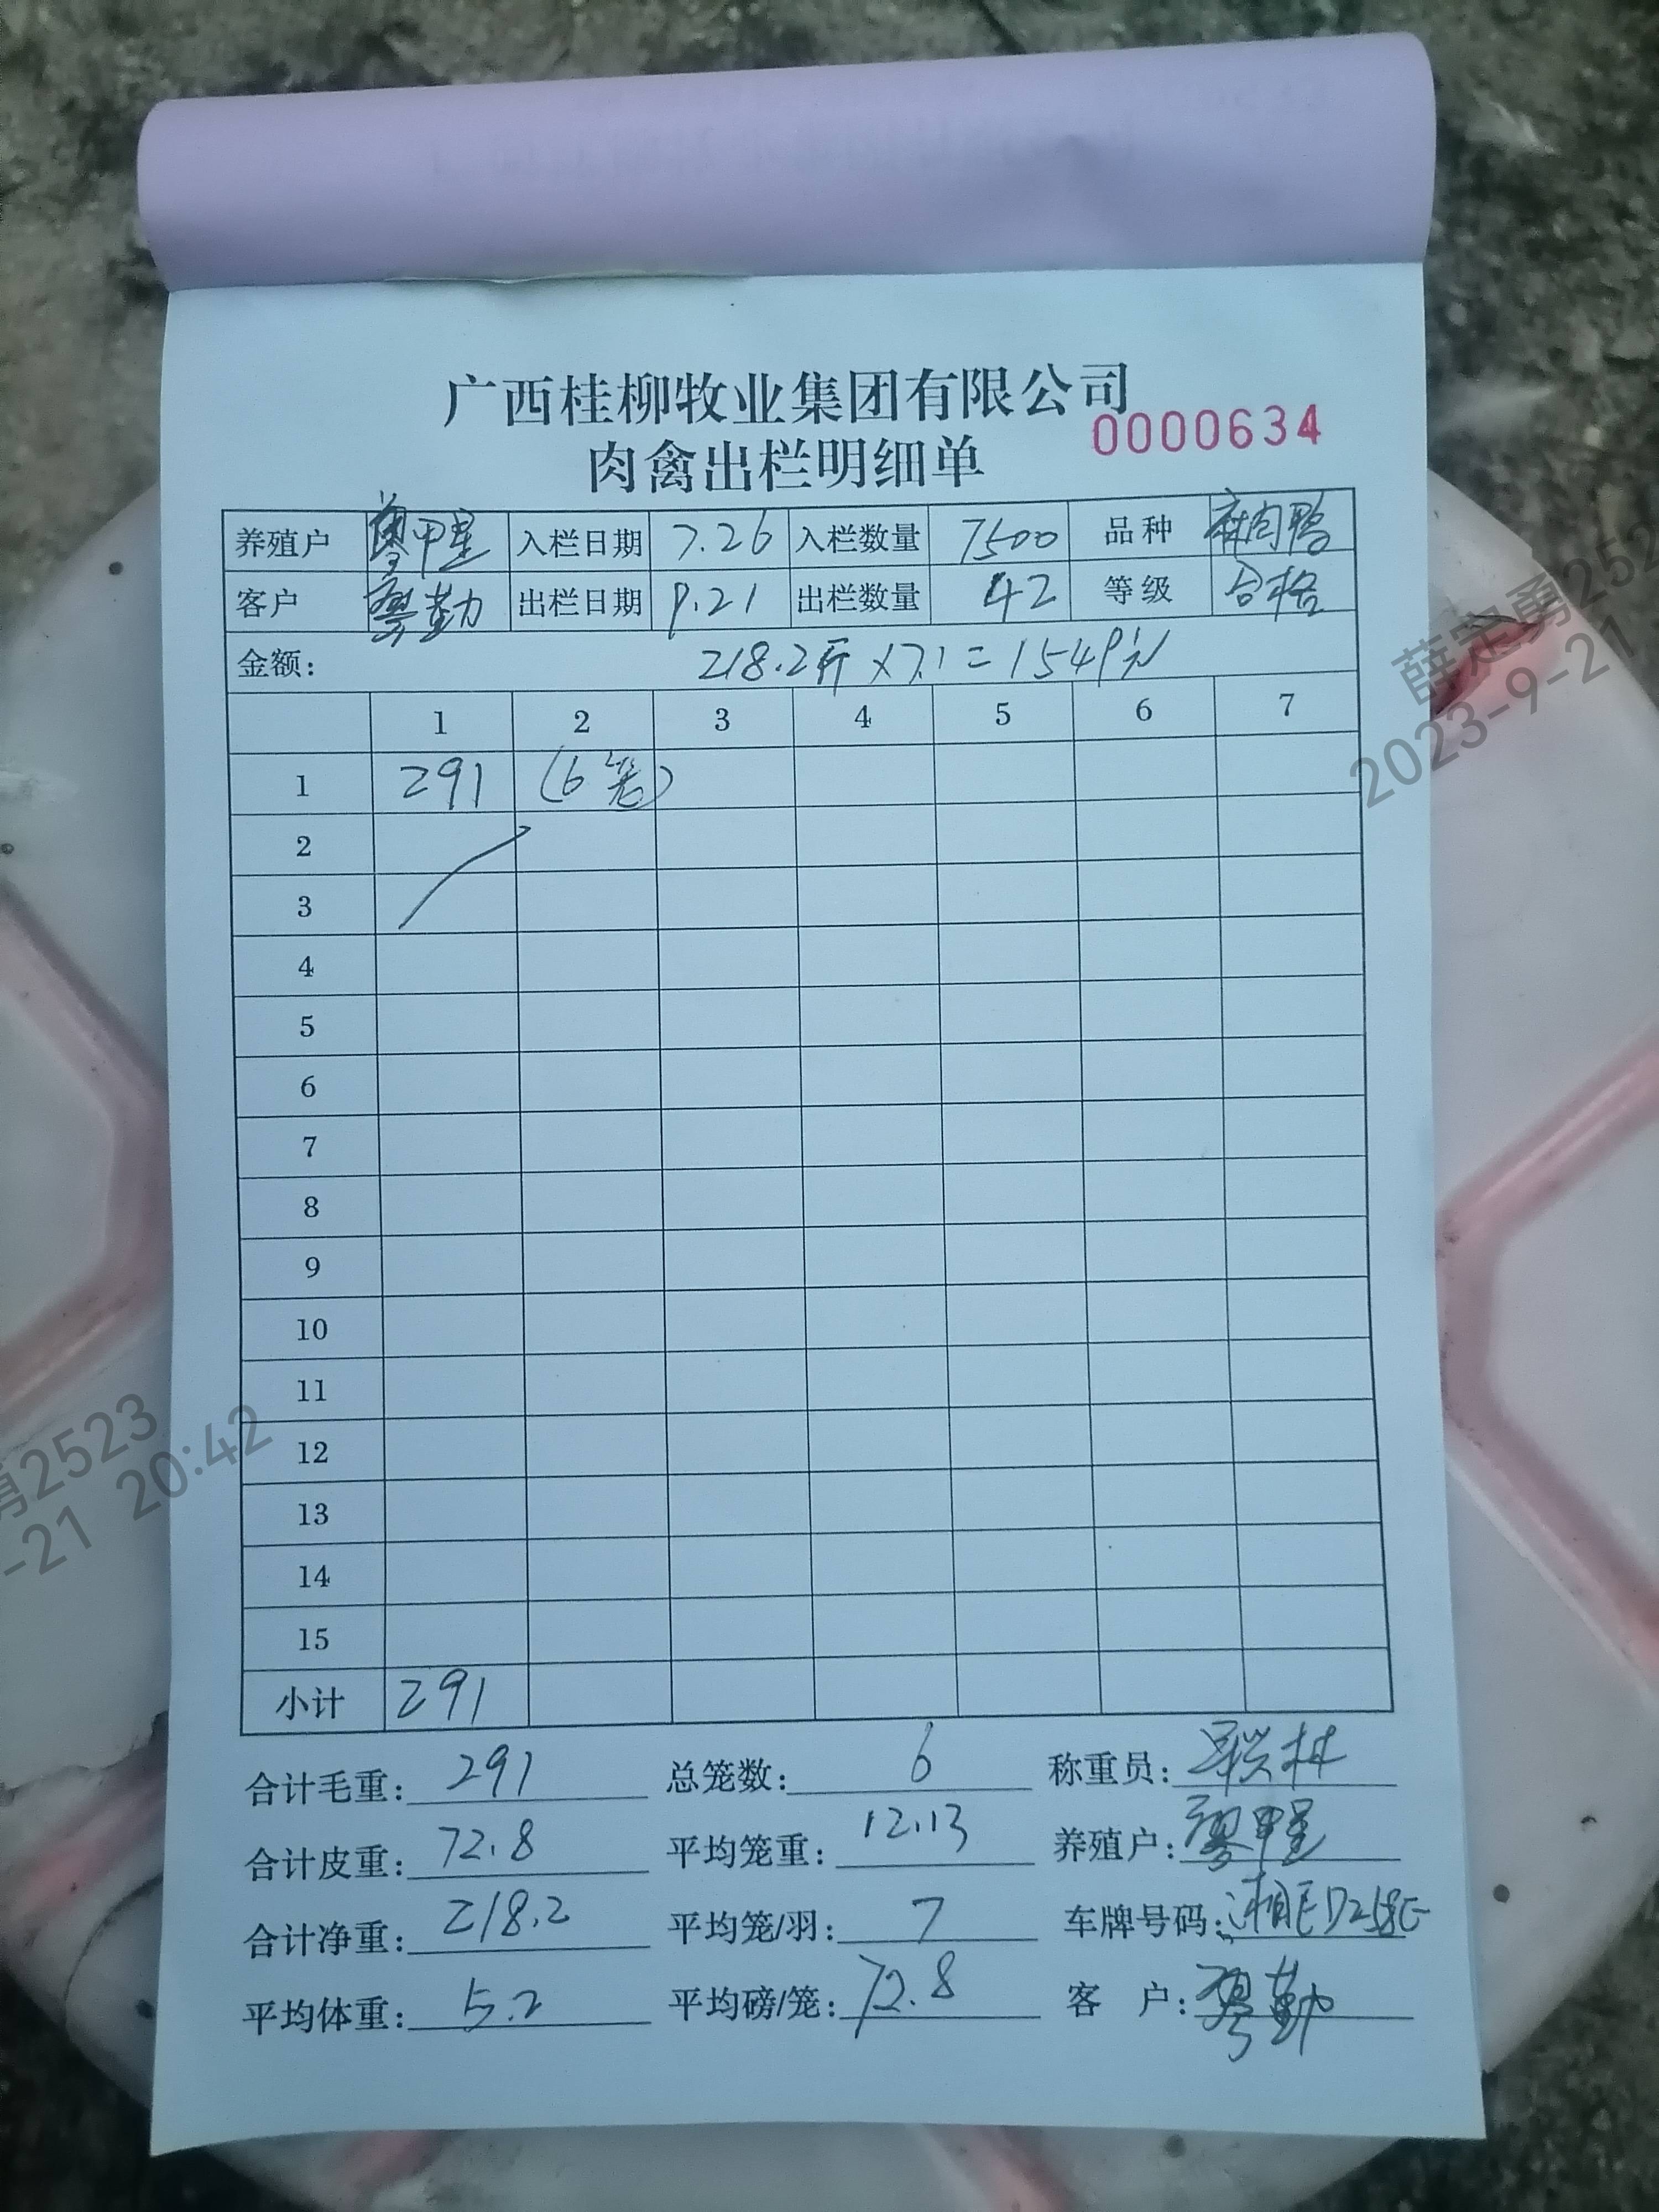 广西桂柳牧业集团有限公司
0000634
肉禽出栏明细单
养殖户 廖甲星 入栏日期 7.26 入栏数量 7500 品种 麻肉鸭
客户 廖勤 出栏日期 9.21 出栏数量 42 等级 合格
金额: 218.2斤×7.1=1549元
1 2 3 4 5 6 7
1 291 (6笼)
2
3
4
5
6
7
8
9
10
11
12
13
14
15
小计 291
合计毛重: 291 总笼数: 6 称重员:
合计皮重: 72.8 平均笼重: 12.13 养殖户: 廖甲星
合计净重: 218.2 平均笼/羽: 7 车牌号码:
平均体重: 5.2 平均磅/笼: 72.8 客 户: 廖勤
薛定勇252
2023-9-21
勇2523
-21 20:42